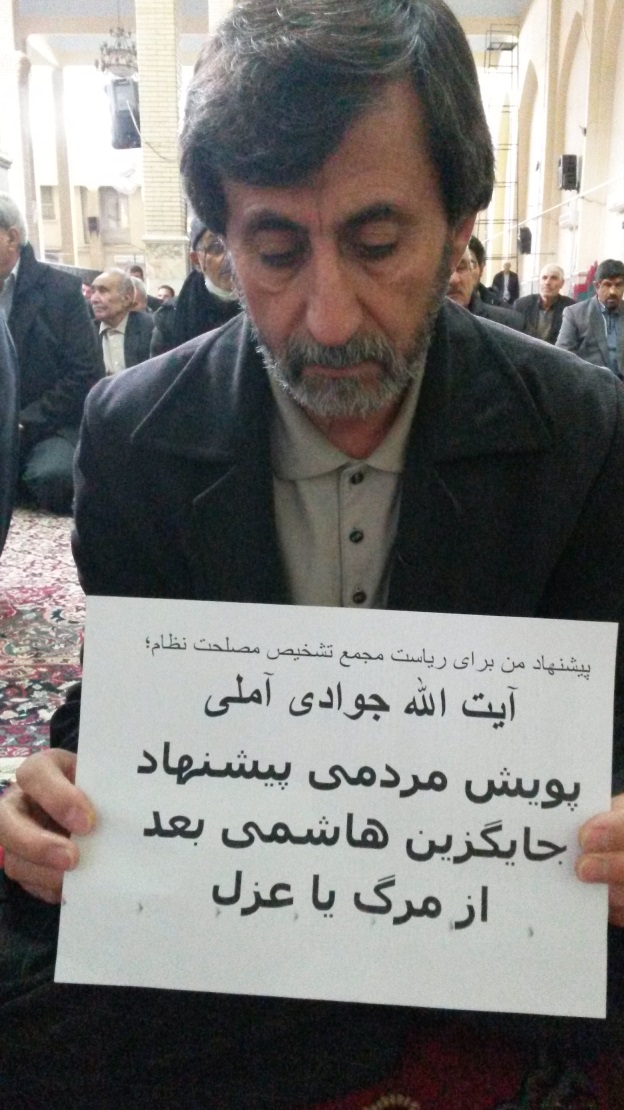 پیشنهاد من برای ریاست مجمع تشخیص مصلحت نظام؛
آیت الله جوادی آملی
پویش مردمی پیشنهاد
جایگزین هاشمی بعد
از مرگ یا عزل